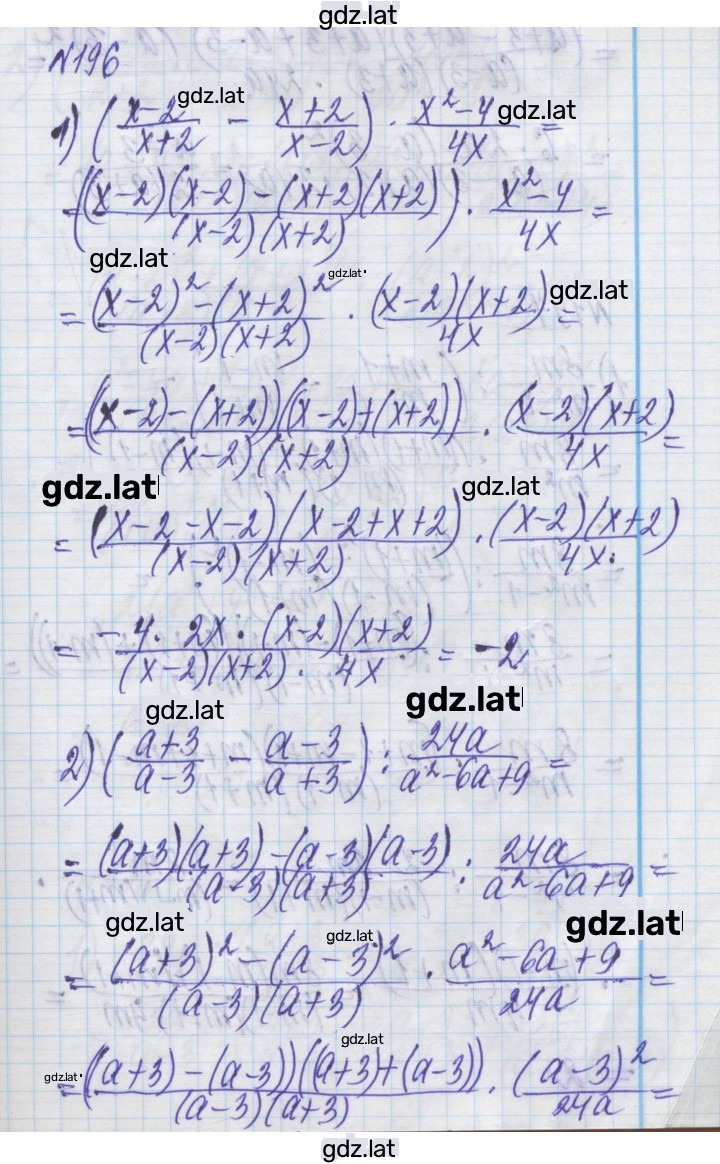 gdz.lat
N196
gdz.lat
1) ((x-2)/(x+2) - (x+2)/(x-2)) · (x²-4)/(4x) =
gdz.lat
= (((x-2)(x-2)-(x+2)(x+2))/((x-2)(x+2))) · (x²-4)/(4x) =
gdz.lat
gdz.lat
gdz.lat
= ((x-2)²-(x+2)²)/((x-2)(x+2)) · ((x-2)(x+2))/(4x) =
= (((x-2)-(x+2))((x-2)+(x+2)))/((x-2)(x+2)) · ((x-2)(x+2))/(4x) =
gdz.lat
gdz.lat
= ((x-2-x-2)(x-2+x+2))/((x-2)(x+2)) · ((x-2)(x+2))/(4x)
= (-4·2x·(x-2)(x+2))/((x-2)(x+2)·4x) = -2
gdz.lat
gdz.lat
2) ((a+3)/(a-3) - (a-3)/(a+3)) : (24a)/(a²-6a+9) =
= ((a+3)(a+3)-(a-3)(a-3))/((a-3)(a+3)) : (24a)/(a²-6a+9) =
gdz.lat
gdz.lat
gdz.lat
= ((a+3)²-(a-3)²)/((a-3)(a+3)) · (a²-6a+9)/(24a) =
gdz.lat
gdz.lat
= (((a+3)-(a-3))((a+3)+(a-3)))/((a-3)(a+3)) · ((a-3)²)/(24a) =
gdz.lat